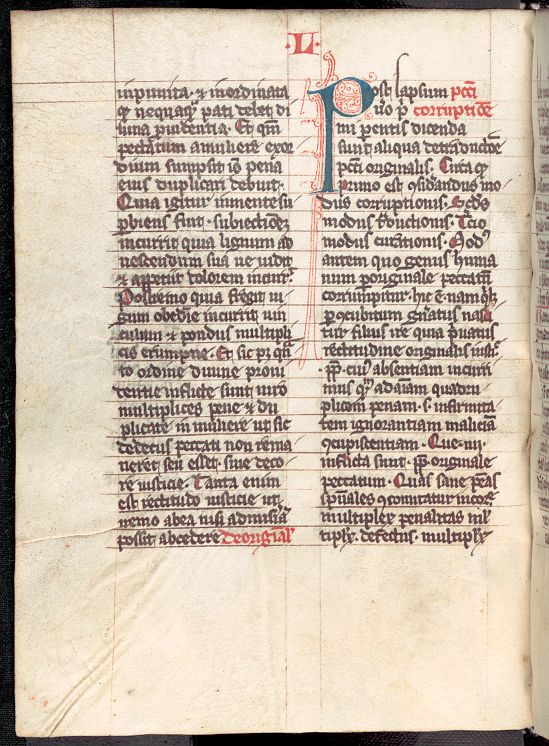 ·L·
inpunita · et inordinata
quod nequaquam pati debet di
uina prudentia. Et quoniam
peccatum a muliere exor
dium sumpsit ideo pena
eius duplicari debuit.
Quia igitur in mente su
perbiens fuit · subiectionem
incurrit quia lignum ad
uescendum suaue uidit
et appetiit dolorem incurrit.
Postremo quia fregit iu
gum obedientie incurrit uin
culum et pondus multipli
cis erumpne. Et sic patet quam
to ordine diuine proui
dentie inflicte sunt uiro
multiplices pene et du
plicate in muliere ut sic
dedecus peccati non rema
neret seu esset · siue deco
re iusticie. Tanta enim
est rectitudo iusticie ut
nemo ab ea nisi admissa
possit abcedere de originali
Post lapsum peccati
uero primi corruptione
mi parentis dicenda
sunt aliqua de traductione
peccati originalis. Circa quod
primo est considerandus mo
dus corruptionis. Secundo
modus traductionis. Tercio
modus curationis. Modus
autem quo genus huma
num per originale peccatum
corrumpitur · hic est. nam quilibet
per concubitum generatus nasci
tur filius ire quia priuatus
rectitudine originalis iusticie
· propter cuius absentiam incurri
mus quantum ad animam quadru
plicem penam · scilicet infirmita
tem ignorantiam maliciam
concupiscentiam. Que iiij.
inflicta sunt · propter originale
peccatum. Quas sane penas
spirituales concomitatur in corpore
multiplex penalitas mul
tiplex · defectus · multiplex